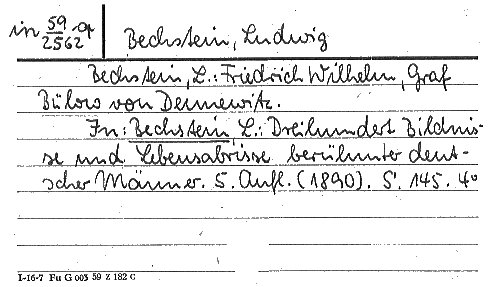 in 59/2562 a
Bechstein, Ludwig
Bechstein, L.: Friedrich Wilhelm, Graf
Bülow von Dennewitz.
In: Bechstein L.: Dreihundert Bildnis-
se und Lebensabrisse berühmter deut-
scher Männer. 5. Aufl. (1890). S. 145. 4°
I-16-7 Fu G 003 59 Z 182 C